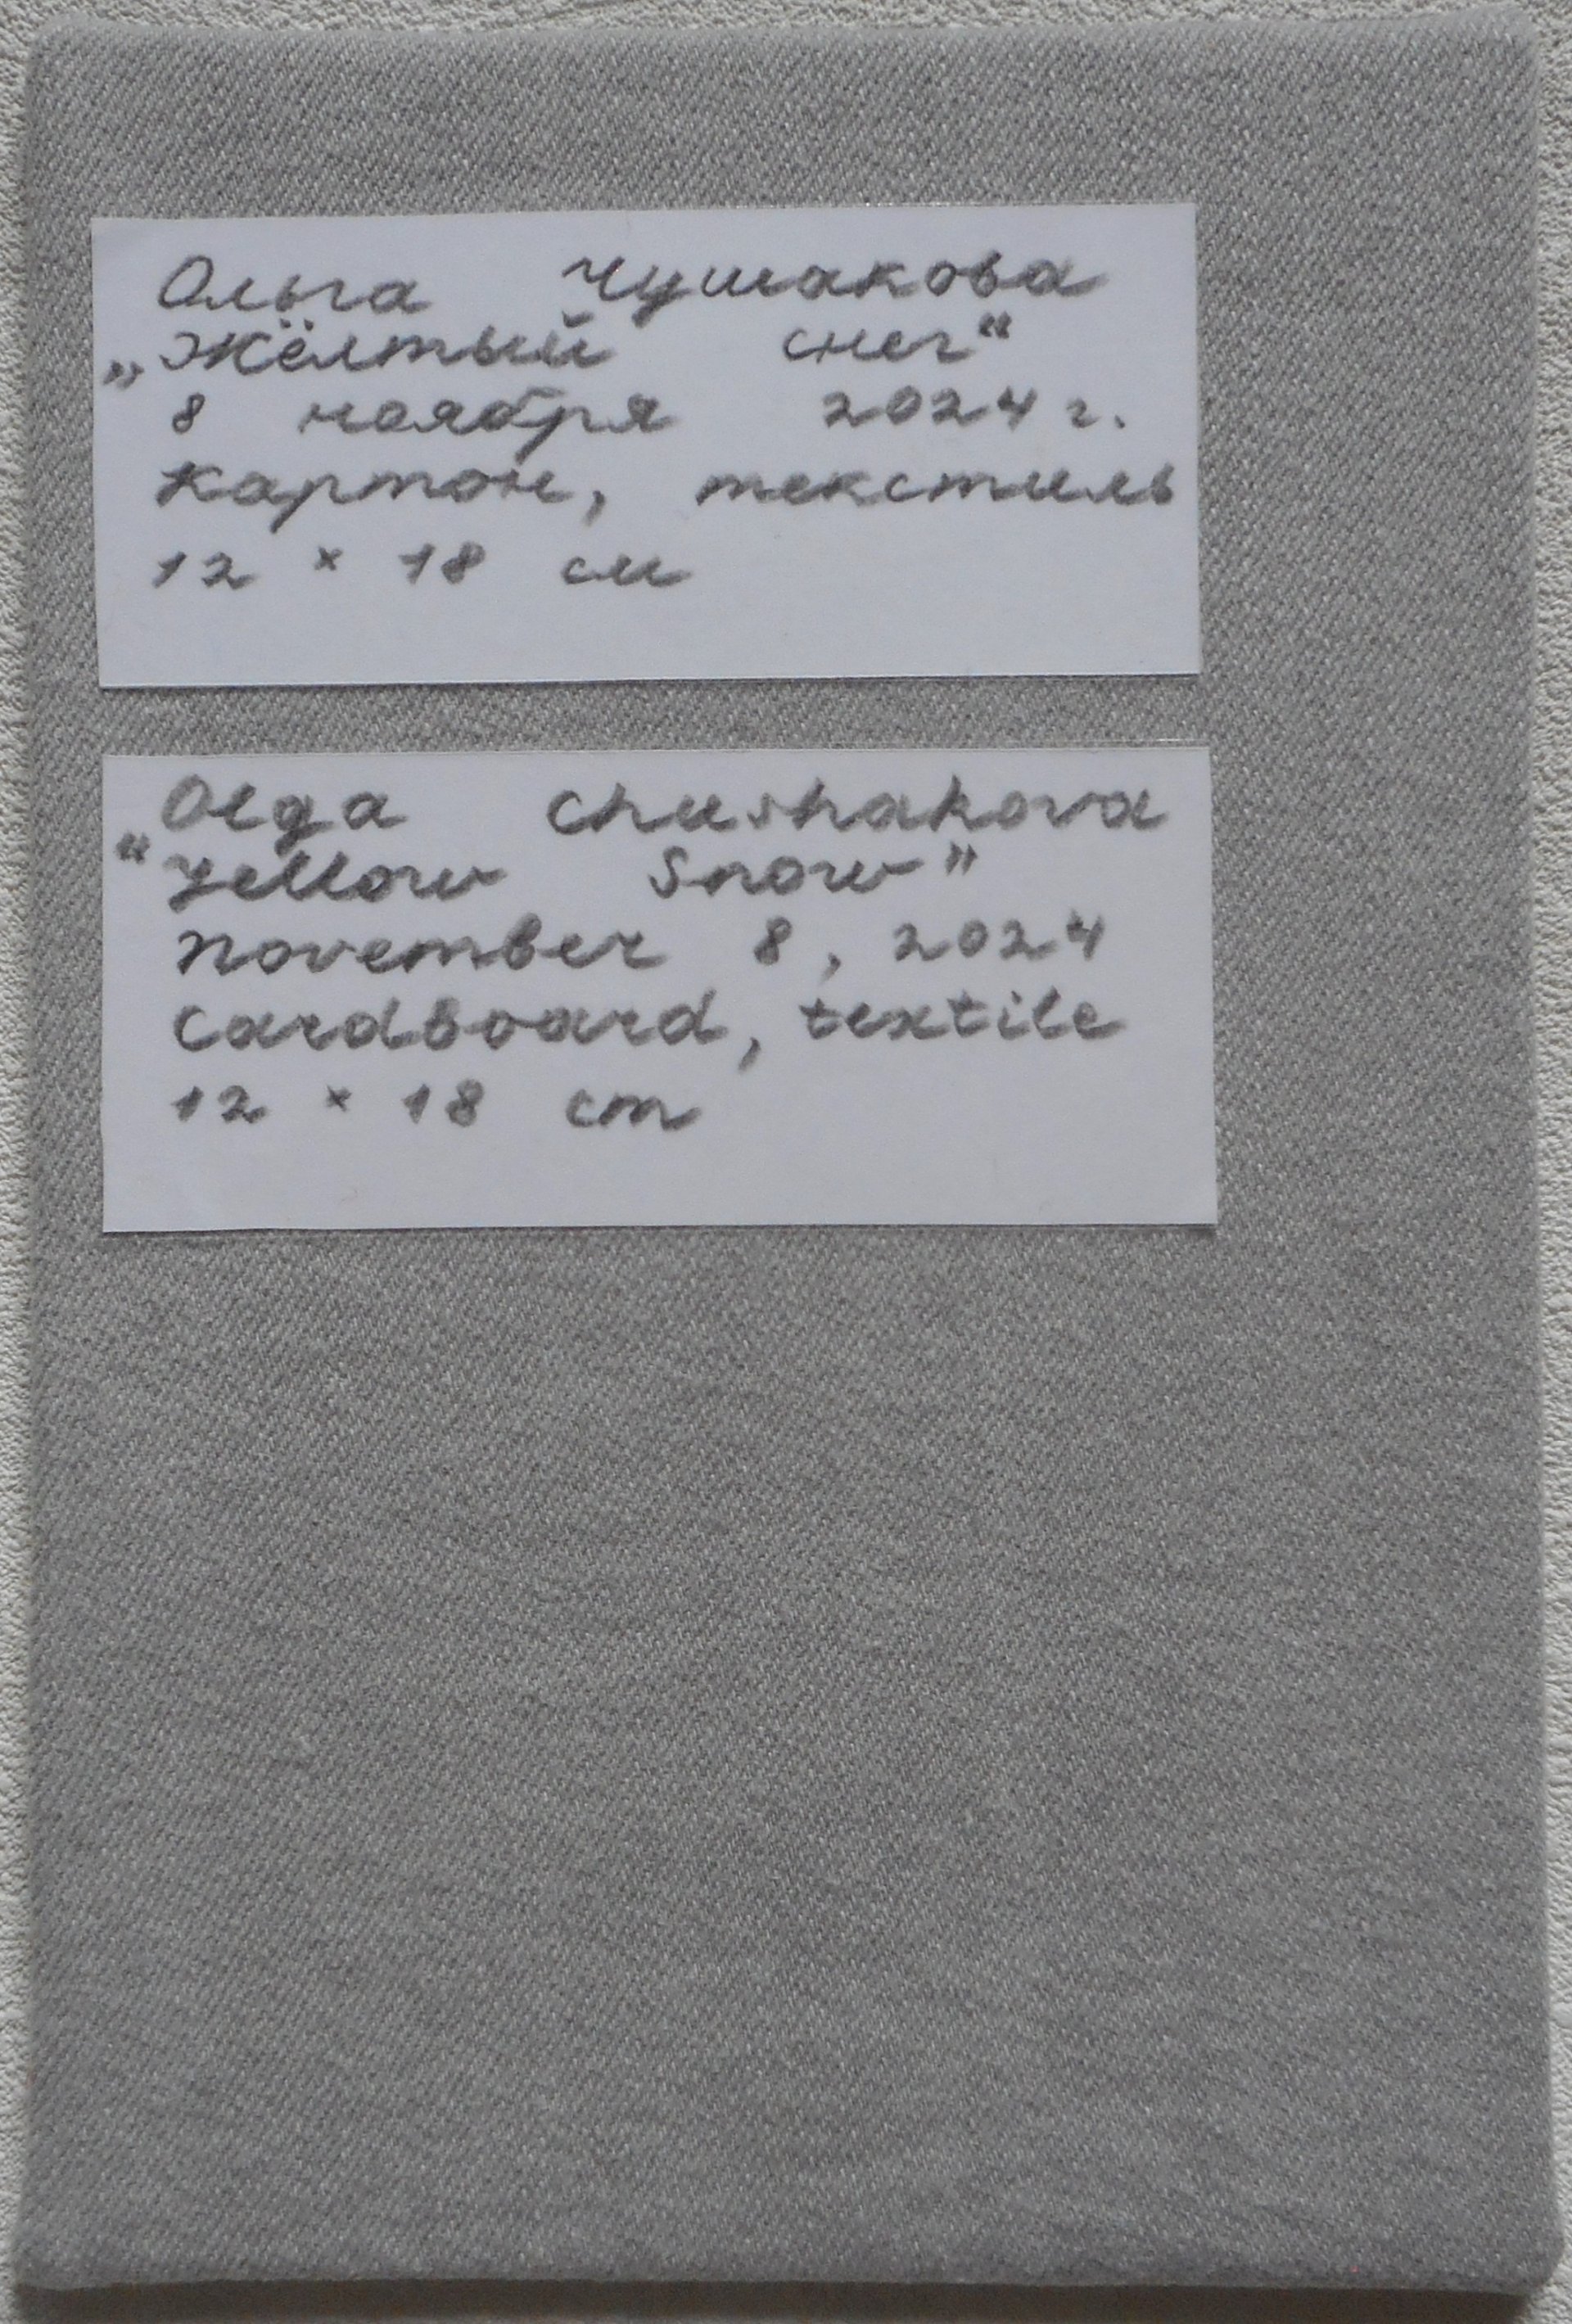 Ольга Чушакова
„Жёлтый снег“
8 ноября 2024 г.
картон, текстиль
12 × 18 см
Olga Chushakova
“Yellow Snow”
November 8, 2024
cardboard, textile
12 × 18 cm